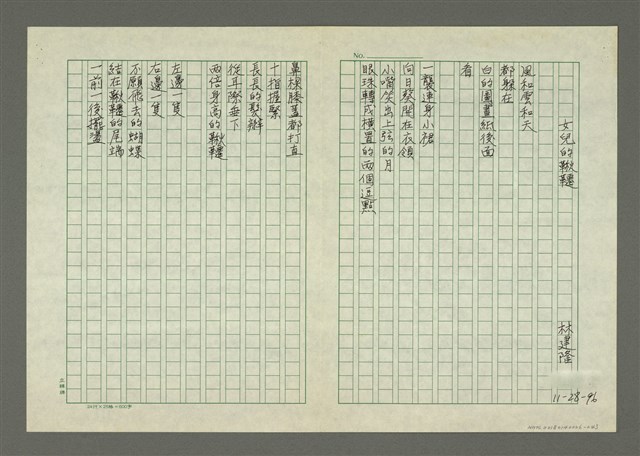 女兒的鞦韆
林建隆
11-28-96
風和雲和天
都躲在
白的圖畫紙後面
看
一襲連身小裙
向日葵開在衣領
小嘴笑出上弦的月
眼珠轉成橫置的兩個逗點
鼻樑膝蓋都打直
十指握緊
長長的髮辮
從耳際垂下
兩倍身高的鞦韆
左邊一隻
右邊一隻
不願飛去的蝴蝶
結在鞦韆的尾端
一前一後擺盪
NO.